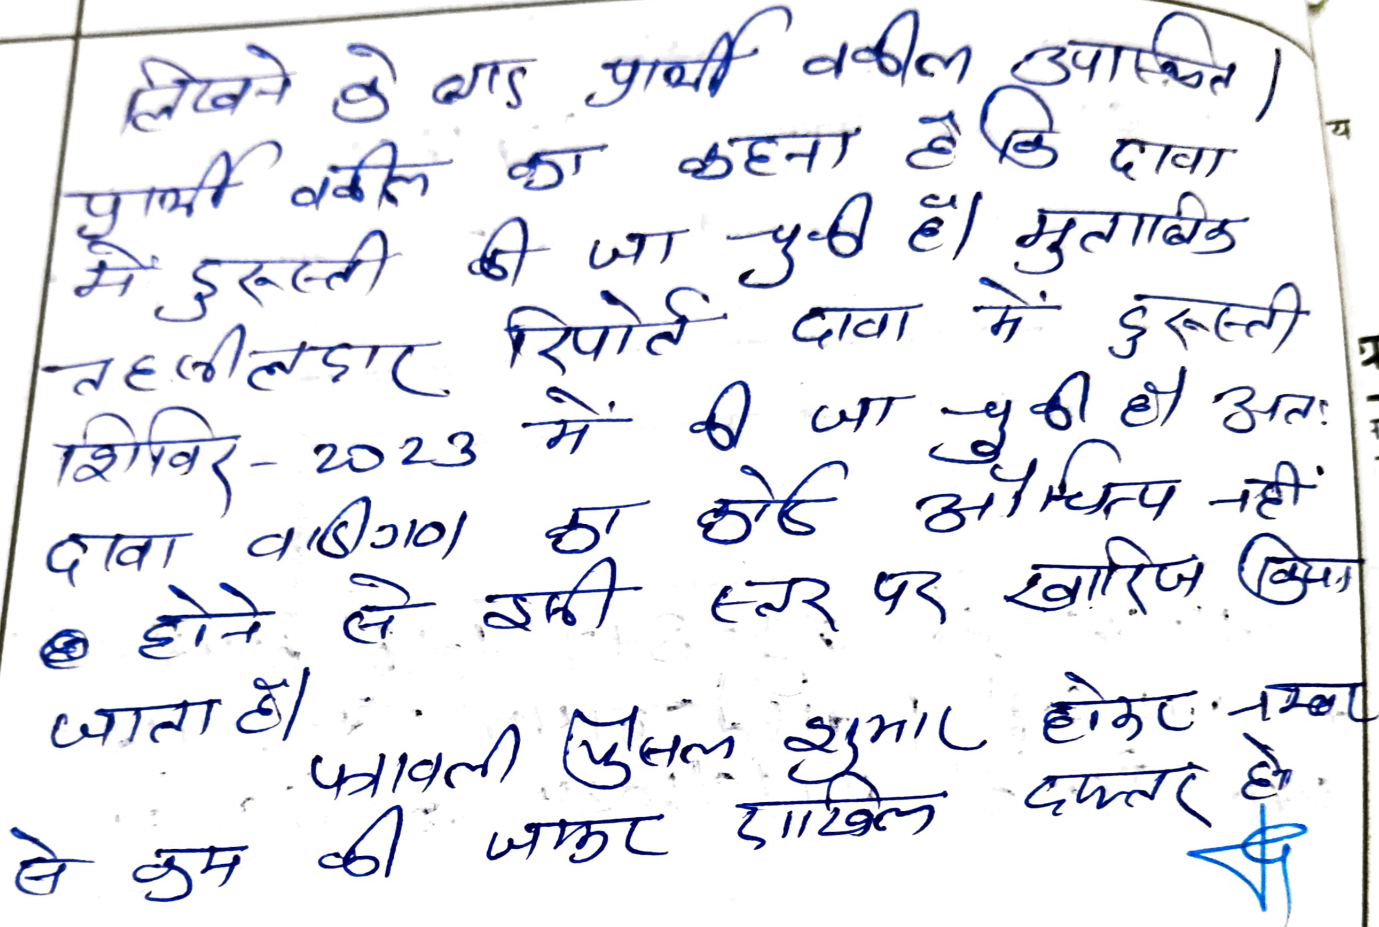 लिखने के बाद प्रार्थी वकील उपस्थित।
प्रार्थी वकील का कहना है कि दावा
में दुरूस्ती की जा चुकी है। मुताबिक
तहसीलदार रिपोर्ट दावा में दुरूस्ती
शिविर - 2023 में की जा चुकी है। अतः
दावा वादीगण का कोई औचित्य नहीं
होने से इसी स्तर पर खारिज किया
जाता है।
पत्रावली फैसल शुमार होकर नम्बर
से कम की जाकर दाखिल दफ्तर हो